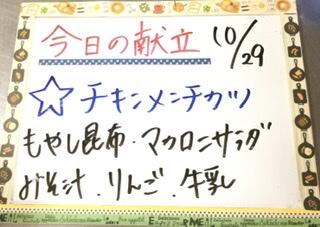 今日の献立 10/29
☆チキンメンチカツ
もやし昆布・マカロニサラダ
みそ汁・りんご・牛乳